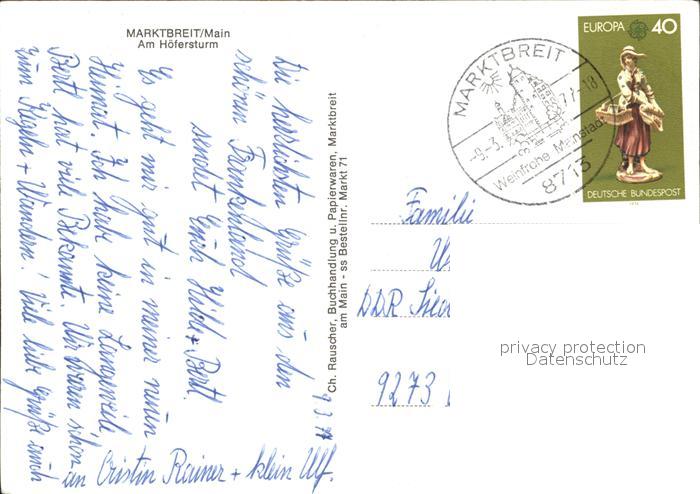 MARKTBREIT/Main
Am Höfersturm
Die herzlichsten Grüße aus den
schönen Frankenland
sendet Euch Hilde + Bertl.
Es geht mir gut in meiner neuen
Heimat. Ich habe keine Langeweile,
Bertl hat viel Bekannte. Wir waren schon
zum Kegeln + Wandern! Viele liebe Grüße auch
an Cristin Rainer + klein Ulf.
9.3.77
Ch. Rauscher, Buchhandlung u. Papierwaren, Marktbreit
am Main - ss Bestellnr. Markt 71
MARKTBREIT
-9.-3. 77-18
Weinfrohe Mainstadt
8713
EUROPA 40
DEUTSCHE BUNDESPOST
1976
Familie
DDR
9273
privacy protection
Datenschutz